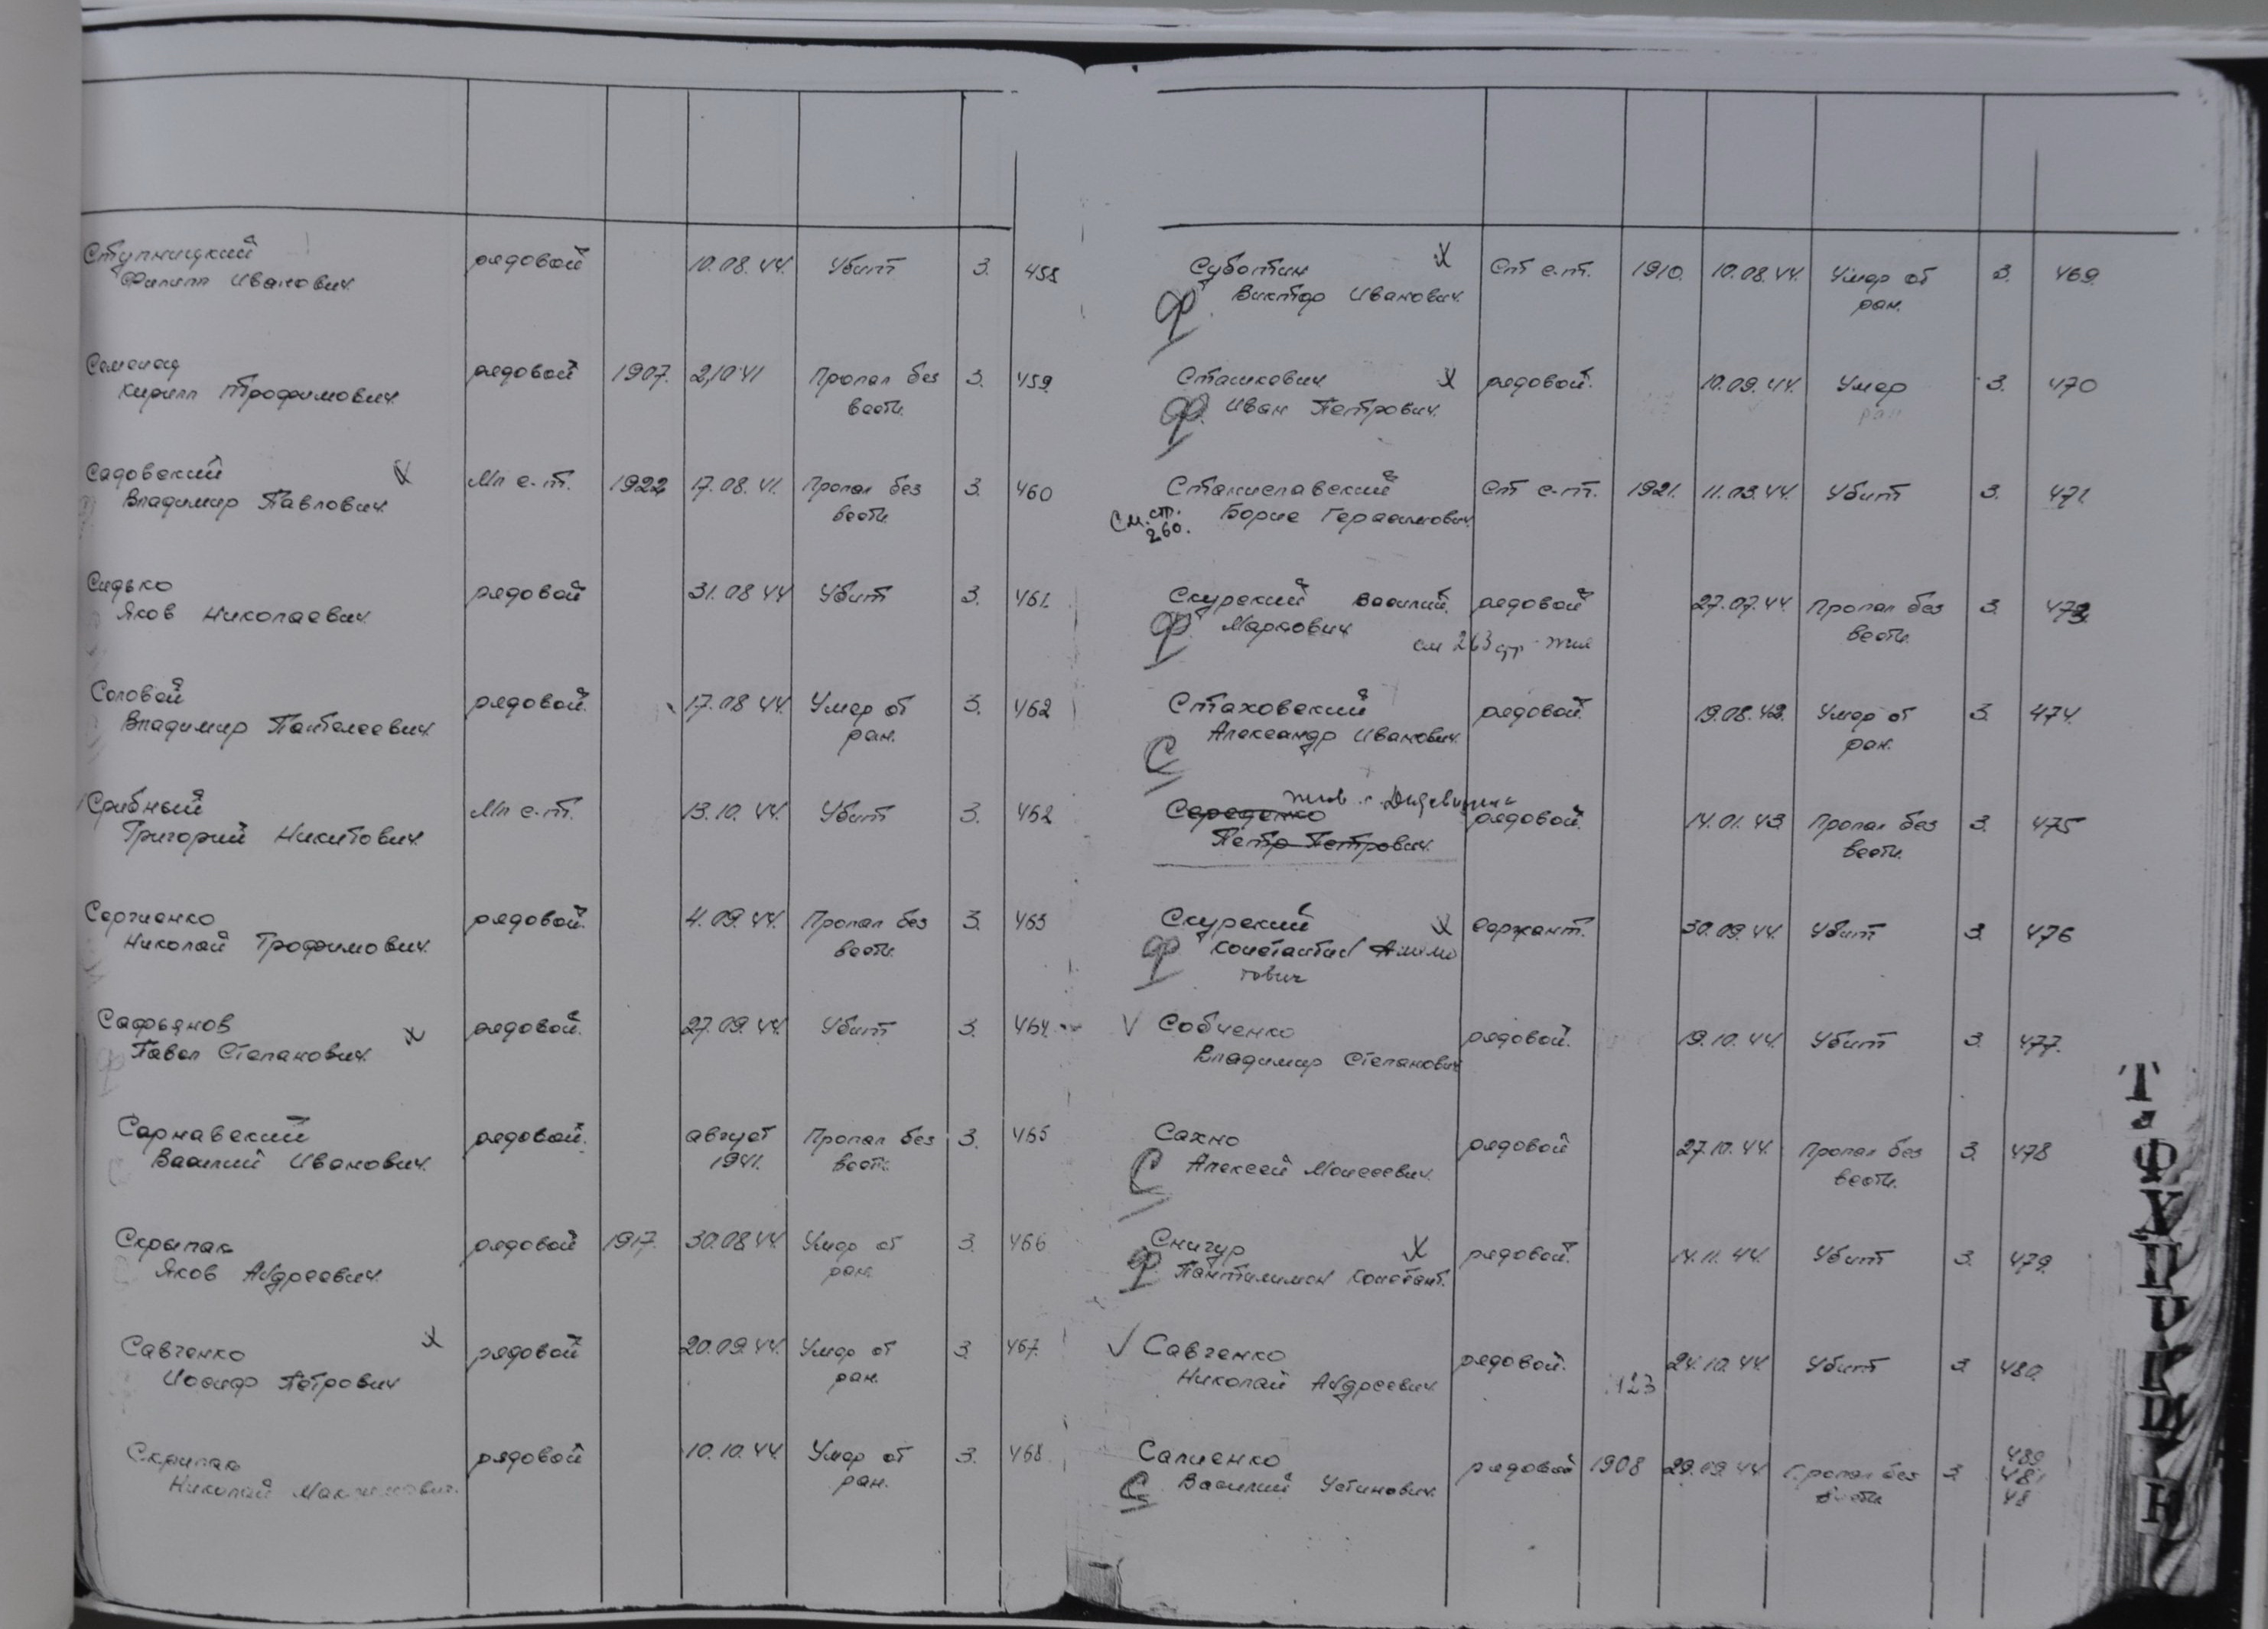 Ступницкий
Филипп Иванович рядовой 10.08.44. Убит 3. 458
рядовой 1907. 2,10 41 Пропал без 3. 459
Кирилл Трофимович вести.
Садовский х Мл с-т. 1922 17.08.41. Пропал без 3. 460
Владимир Павлович вести.
Сидько рядовой 31.08 44 Убит 3. 461.
Яков Николаевич
Соловей рядовой. 17.08 44. Умер от 3. 462
Владимир Пантелеевич ран.
Срибный Мл с-т. 13.10.44. Убит 3. 462
Григорий Никитович
Сергиенко рядовой. 4.09.44. Пропал без 3. 463
Николай Трофимович вести.
Сафьянов х рядовой. 27.09.44. Убит 3. 464.
Павел Степанович
Сарнавский рядовой. август Пропал без 3. 465
Василий Иванович. 1941. вести.
Скрыпак рядовой 1917. 30.08 44. Умер от 3. 466
Яков Андреевич ран.
Савченко х рядовой 20.09.44. Умер от 3. 467.
Иосиф Петрович ран.
Скрипак рядовой 10.10.44. Умер от 3. 468.
Николай Максимович. ран.
Суботин х Ст с-т. 1910. 10.08.44. Умер от 3. 469.
Ф Виктор Иванович. ран.
Сташкович х рядовой. 10.09.44. Умер 3. 470
Ф Иван Петрович. ран
Станиславский Ст с-т. 1921. 11.03.44. Убит 3. 471.
См. стр. 260. Борис Герасимович
Скурский Василий рядовой 27.07.44. Пропал без 3. 473
Ф Маркович см 263 стр вести.
Стаховский рядовой. 19.08.43. Умер от 3. 474.
С Александр Иванович. ран.
жив
Середенко рядовой. 14.01.43 Пропал без 3. 475
Петр Петрович. вести.
Скурский х сержант. 30.09.44. Убит 3. 476
Ф Константин
тович
√ Собченко рядовой. 19.10.44. Убит 3. 477.
Владимир Степанович
Сахно рядовой 27.10.44. Пропал без 3. 478
С Алексей Моисеевич. вести.
Снигур х рядовой. 14.11.44. Убит 3. 479.
Ф Пантилимон Констант.
√ Савченко рядовой. 24.10.44. Убит 3 480.
Николай Андреевич.
Сапиенко рядовой 1908 29.09.44 Пропал без 3. 481
С Василий Устинович. вести
Т
Ф
У
Ц
Ч